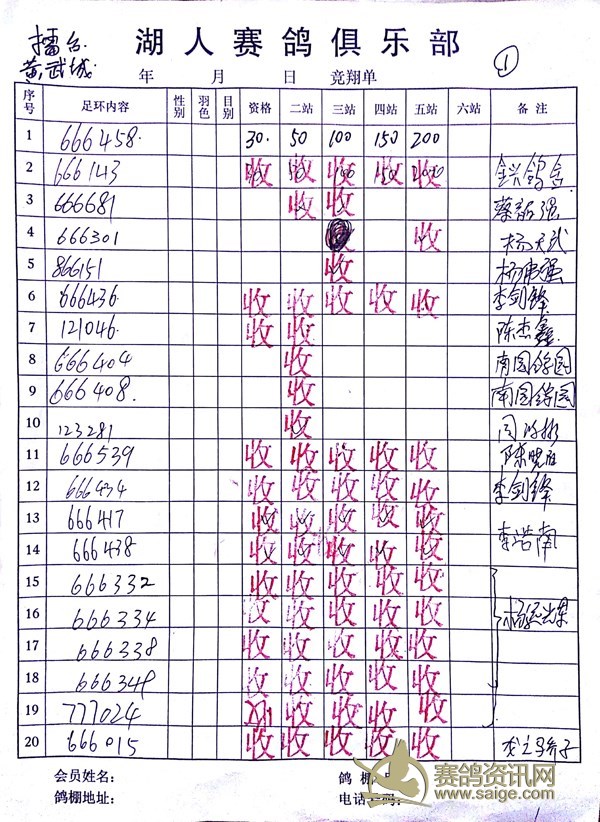 擂台 湖人赛鸽俱乐部
黄武城 年 月 日 竞翔单 ①
序号 足环内容 性别 羽色 目别 资格 二站 三站 四站 五站 六站 备注
1 666458. 30. 50 100 150 200
2 666143 收 收 收 收 收 金兴鸽舍
3 666681 收 收
4 666301 收 杨天武
5 866151 收
6 666436 收 收 收 收 收 李剑锋
7 121046. 收 收 陈杰鑫.
8 666404 收 南园鸽园
9 666408. 收 南园鸽园
10 123281 收
11 666539 收 收 收 收 收
12 666434 收 收 收 收 收 李剑锋
13 666417 收 收 收 收 收
14 666438 收 收 收 收 收
15 666332 收 收 收 收 收
16 666334 收 收 收 收 收
17 666338 收 收 收 收 收
18 666349 收 收 收 收 收
19 777024 收 收 收 收 收
20 666015 收 收 收 收 收
会员姓名: 鸽棚
鸽棚地址: 电话
赛鸽资讯网
www.saige.com